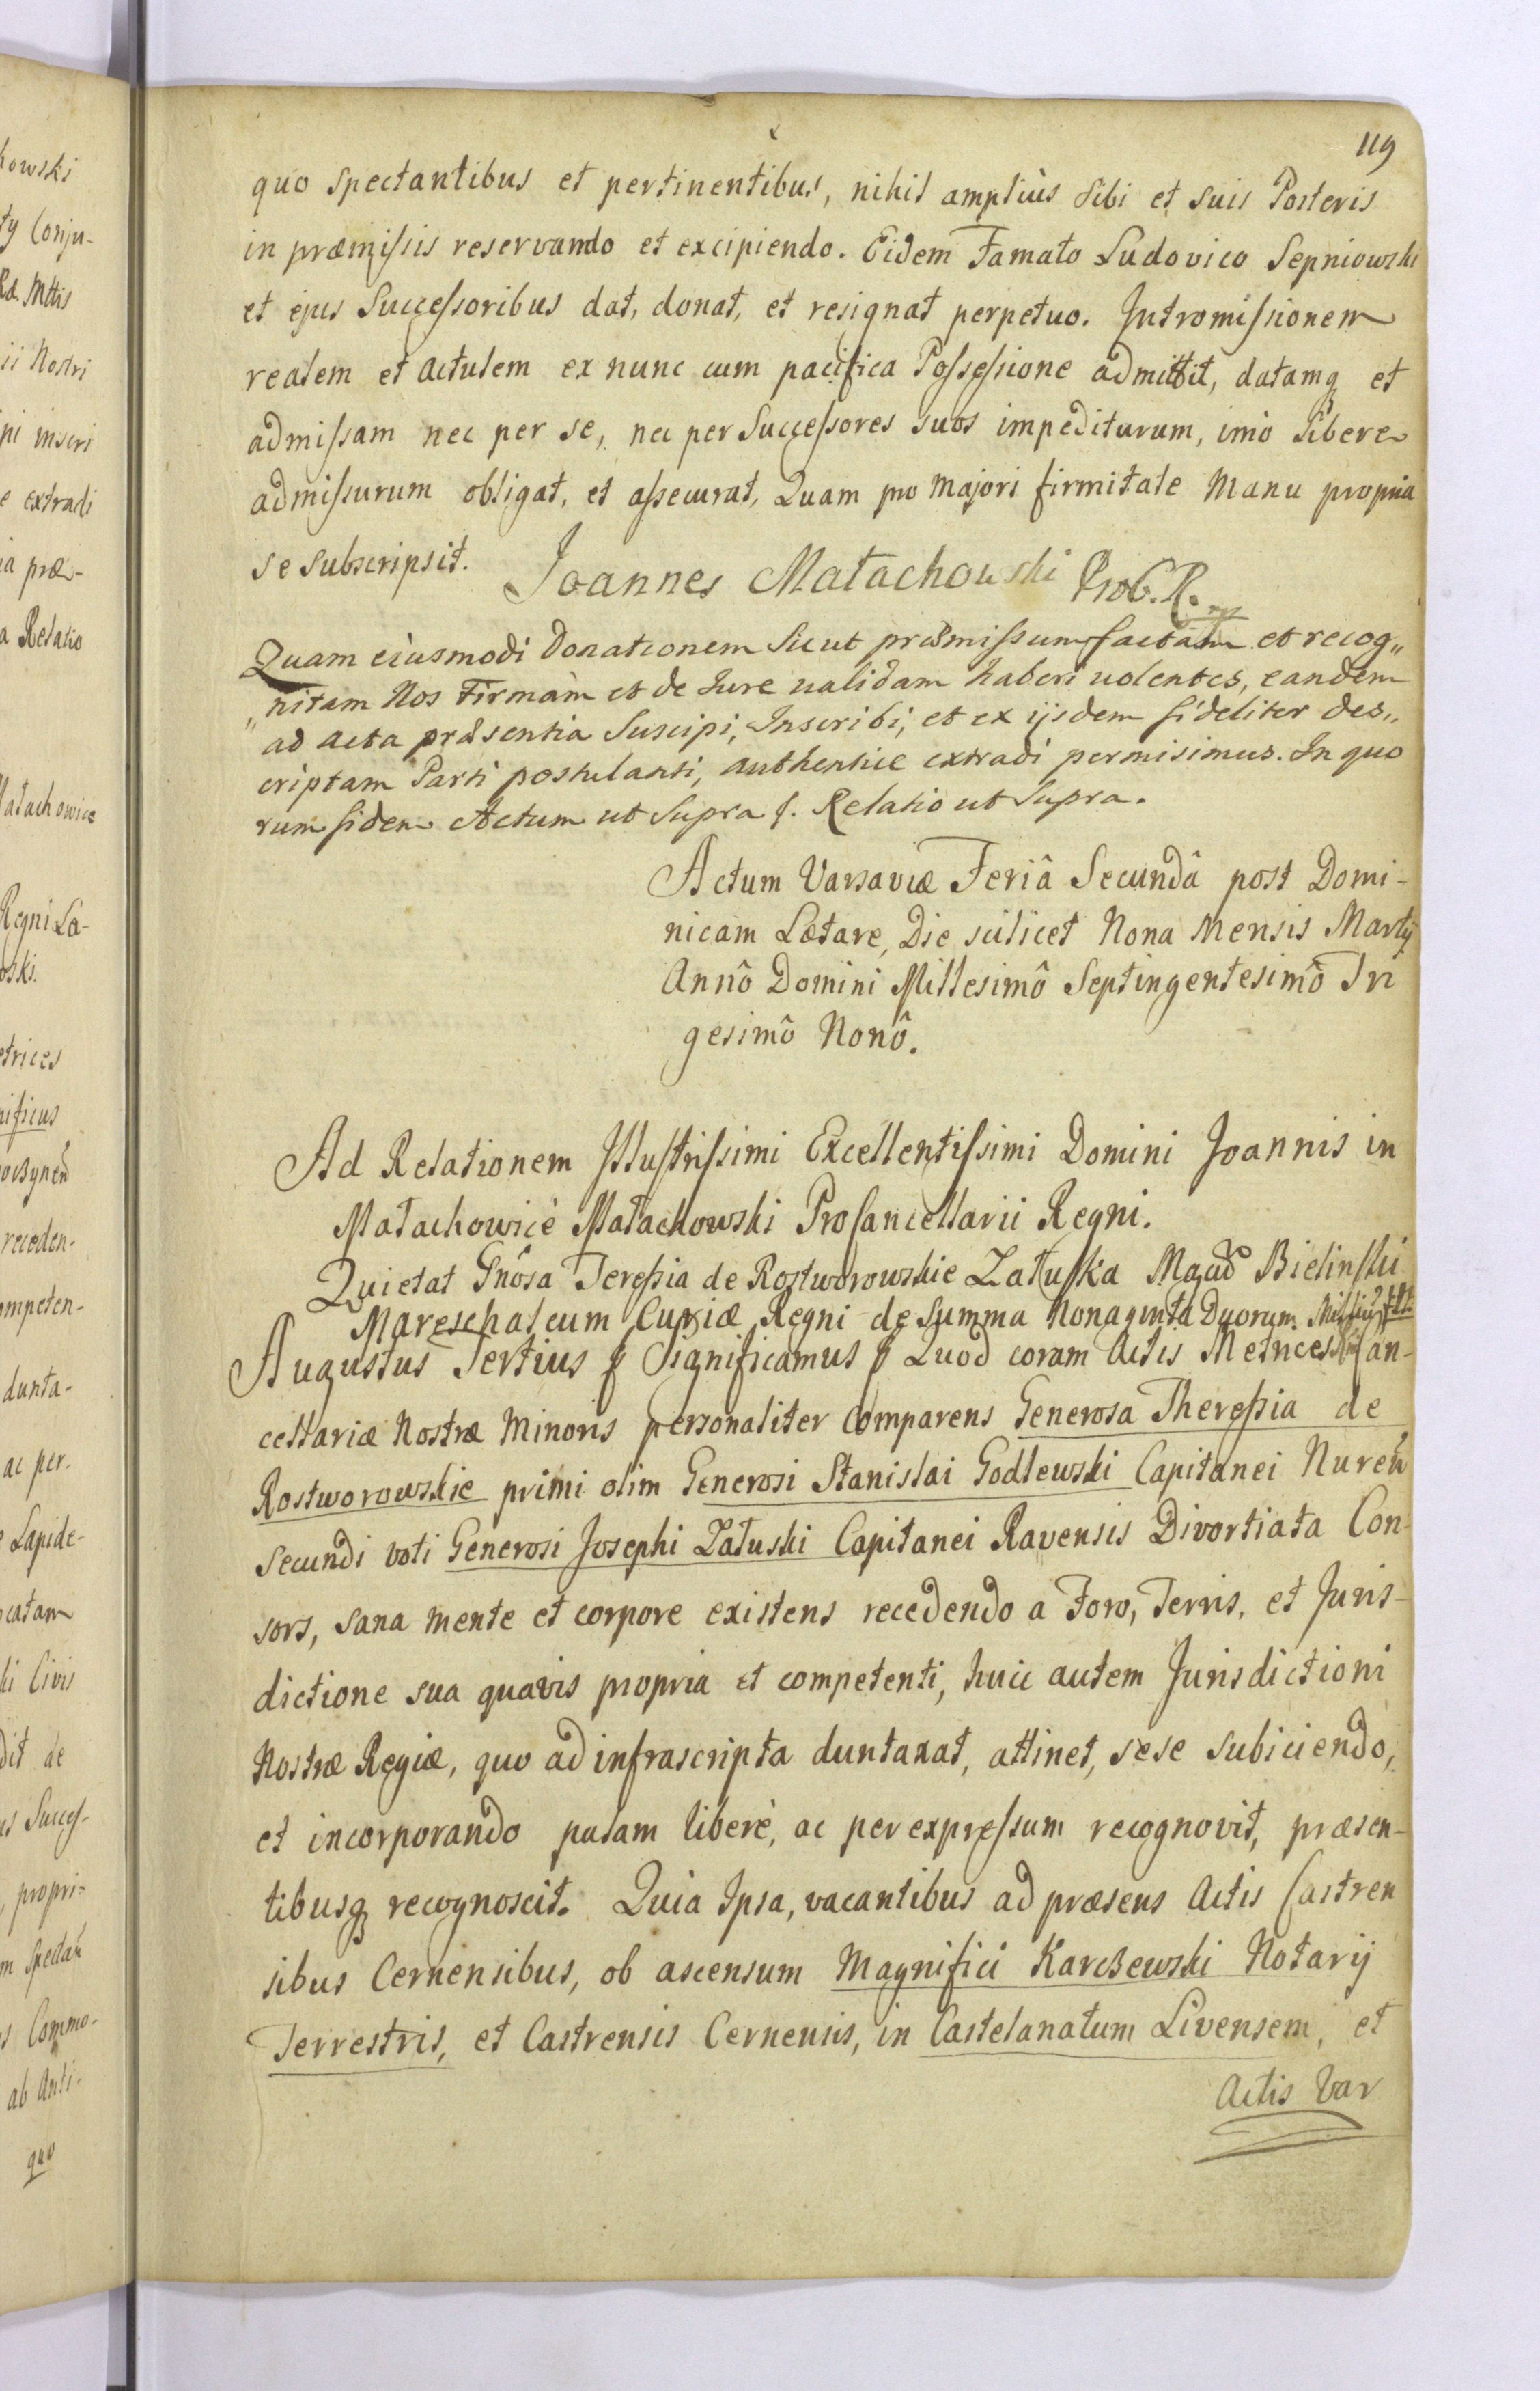 119
quo spectantibus et pertinentibus, nihil ampliùs sibi et suis Posteris
in præmissis reservando et excipiendo. Eidem Famato Ludovico Sepniowski
et ejus Successoribus dat, donat, et resignat perpetuo. Intromissionem
realem et actulem ex nunc cum pacifica Possessione admittit, datamq et
admissam nec per se, nec per Successores suos impediturum, imò libere
admissurum obligat, et assecurat, Quam pro majori firmitate Manu propria
se subscripsit. Joannes Małachowski ProC. R.
Quam eiusmodi Donationem Sicut præmissum factam et recog„
„nitam Nos Firmam et de Iure validam haberi volentes, eandem
ad acta præsentia Suscipi, Inscribi, et ex ijsdem fideliter des„
criptam Parti postulanti, authentice extradi permisimus. In quo
rum fidem Actum ut Supra f. Relatio ut Supra.
Actum Varsaviæ Feriâ Secundâ post Domi-
nicam Lætare, Die scilicet Nona Mensis Martij
Annô Domini Millesimô Septingentesimô Tri
gesimô Nonô.
Ad Relationem Illustrissimi Excellentissimi Domini Joannis in
Małachowice Małachowski ProCancellarii Regni.
Quietat Gnôsa Teressia de Rostworowskie Załuska Magud Bielinski
Mareschalcum Curiæ Regni de Summa Nonaginta Duorum
Augustus Tertius f Significamus f Quod coram Actis Metrices Can-
cellariæ Nostræ Minoris personaliter comparens Generosa Theressia de
Rostworowskie primi olim Generosi Stanislai Godlewski Capitanei Nureń
secundi voti Generosi Josephi Załuski Capitanei Ravensis Divortiata Con
sors, sana mente et corpore existens recedendo a Foro, Terris, et Juris-
dictione sua quavis propria et competenti, huic autem Jurisdictioni
Nostræ Regiæ, quo ad infrascripta duntaxat, attinet, sese subiciendo,
et incorporando palam liberè, ac per expressum recognovit, præsen-
tibusq recognoscit. Quia Ipsa, vacantibus ad præsens Actis Castren
sibus Cernensibus, ob ascensum Magnifici Karczewski Notarij
Terrestris, et Castrensis Cernensis, in Castelanatum Livensem, et
Actis Var
howski
ty Conju-
Mttis
ii Nostri
pi inscri
e extradi
ia præ-
a Relatio
Małachowice
Regni
oski.
etrices
nificus
receden-
ompeten-
dunta-
ac per-
Lapide-
catam
ki Civis
dit de
es Succes-
propri-
m Spectań
s Commo-
ab Anti-
quo